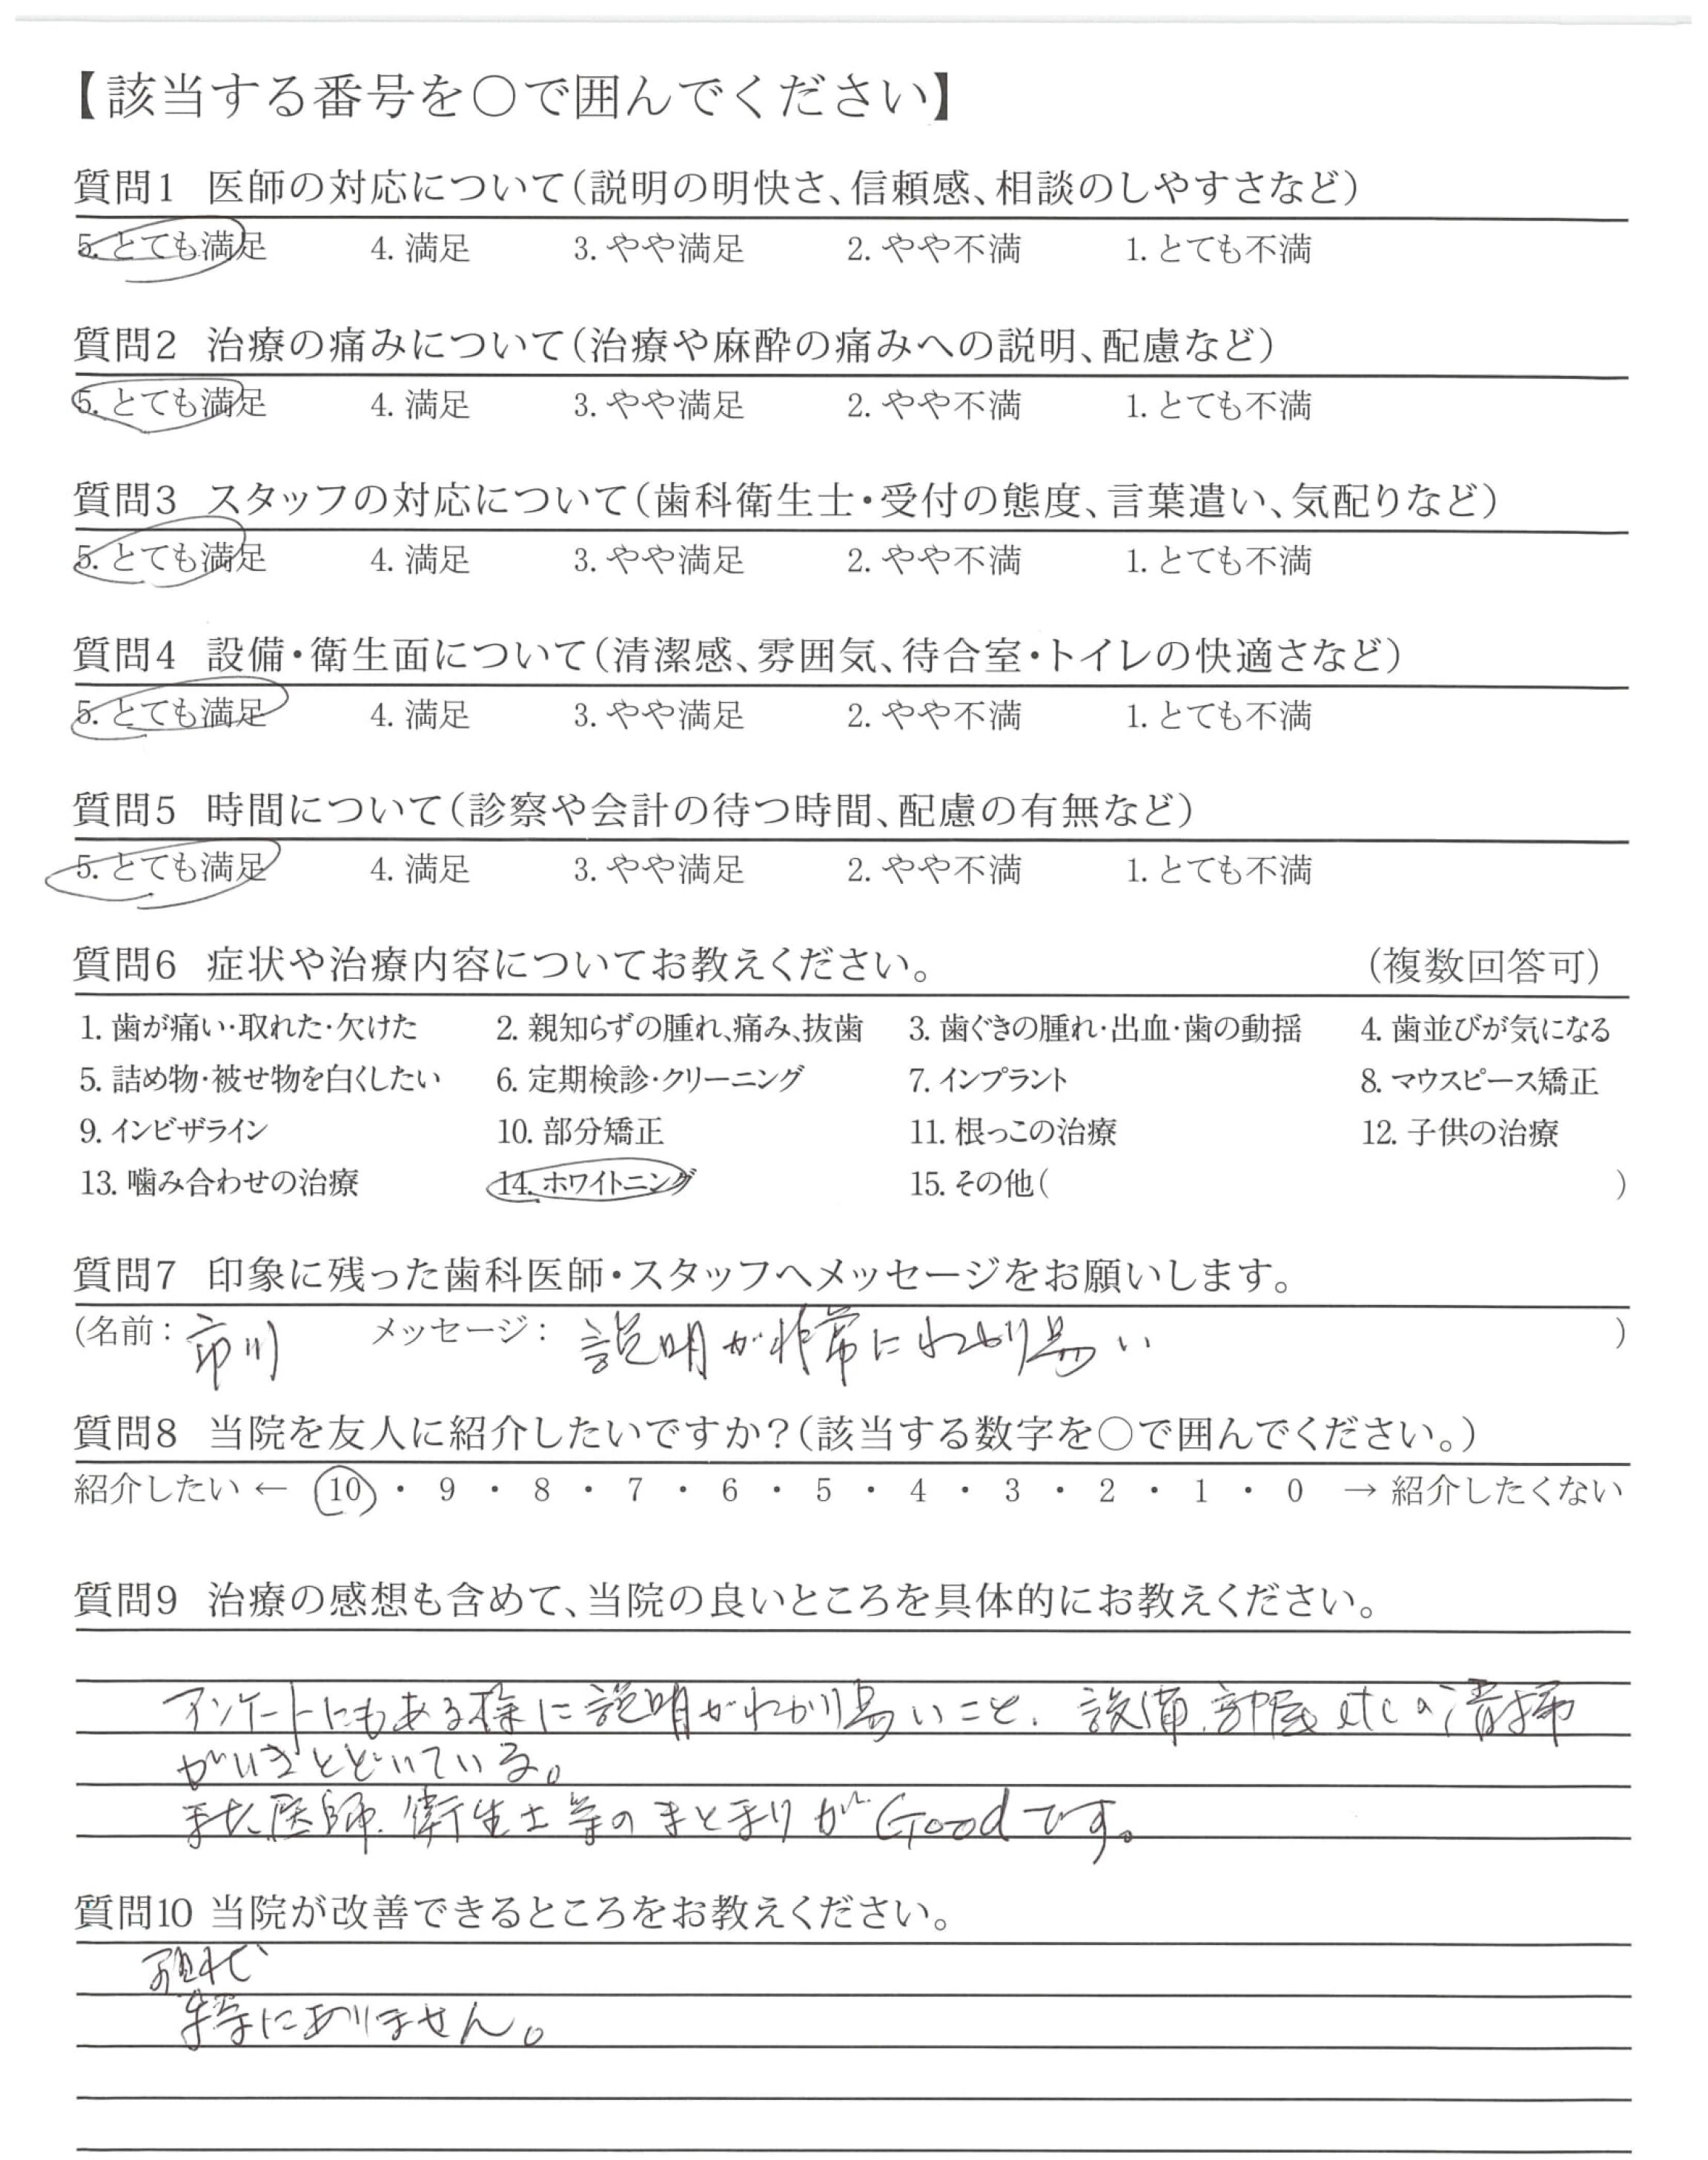 【該当する番号を○で囲んでください】
質問1 医師の対応について(説明の明快さ、信頼感、相談のしやすさなど)
5. とても満足 4. 満足 3. やや満足 2. やや不満 1. とても不満
質問2 治療の痛みについて(治療や麻酔の痛みへの説明、配慮など)
5. とても満足 4. 満足 3. やや満足 2. やや不満 1. とても不満
質問3 スタッフの対応について(歯科衛生士・受付の態度、言葉遣い、気配りなど)
5. とても満足 4. 満足 3. やや満足 2. やや不満 1. とても不満
質問4 設備・衛生面について(清潔感、雰囲気、待合室・トイレの快適さなど)
5. とても満足 4. 満足 3. やや満足 2. やや不満 1. とても不満
質問5 時間について(診察や会計の待つ時間、配慮の有無など)
5. とても満足 4. 満足 3. やや満足 2. やや不満 1. とても不満
質問6 症状や治療内容についてお教えください。 (複数回答可)
1. 歯が痛い・取れた・欠けた 2. 親知らずの腫れ、痛み、抜歯 3. 歯ぐきの腫れ・出血・歯の動揺 4. 歯並びが気になる
5. 詰め物・被せ物を白くしたい 6. 定期検診・クリーニング 7. インプラント 8. マウスピース矯正
9. インビザライン 10. 部分矯正 11. 根っこの治療 12. 子供の治療
13. 噛み合わせの治療 14. ホワイトニング 15. その他( )
質問7 印象に残った歯科医師・スタッフへメッセージをお願いします。
(名前: 市川 メッセージ: 説明が非常にわかり易い )
質問8 当院を友人に紹介したいですか?(該当する数字を○で囲んでください。)
紹介したい ← 10 ・ 9 ・ 8 ・ 7 ・ 6 ・ 5 ・ 4 ・ 3 ・ 2 ・ 1 ・ 0 → 紹介したくない
質問9 治療の感想も含めて、当院の良いところを具体的にお教えください。
アンケートにもある様に説明がわかり易いこと、設備、部屋etcの清掃
がいきとどいている。
また医師、衛生士等のまとまりがGoodです。
質問10 当院が改善できるところをお教えください。
現状
特にありません。